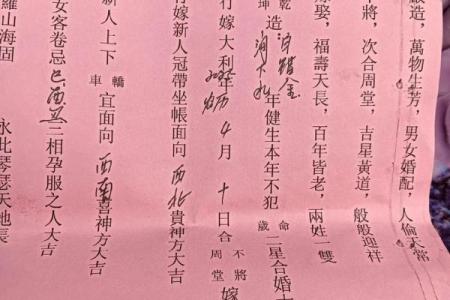 啟造，萬物生芳，男女婚配，人倫大常
不將，次合周堂，吉星黃道，般般迎祥
嫁娶，福壽天長，百年皆老，兩姓一雙
乾坤造年健生本年不犯歲命二星合婚
行嫁大利年農历4月十日合不將周堂嫁
行嫁新人冠帶坐帳面向西北貴神方大吉
新人上下轎車宜面向西南喜神方大吉
女客卷忌巳酉丑三相孕服之人大吉
羅山海固
永此琴瑟天地長